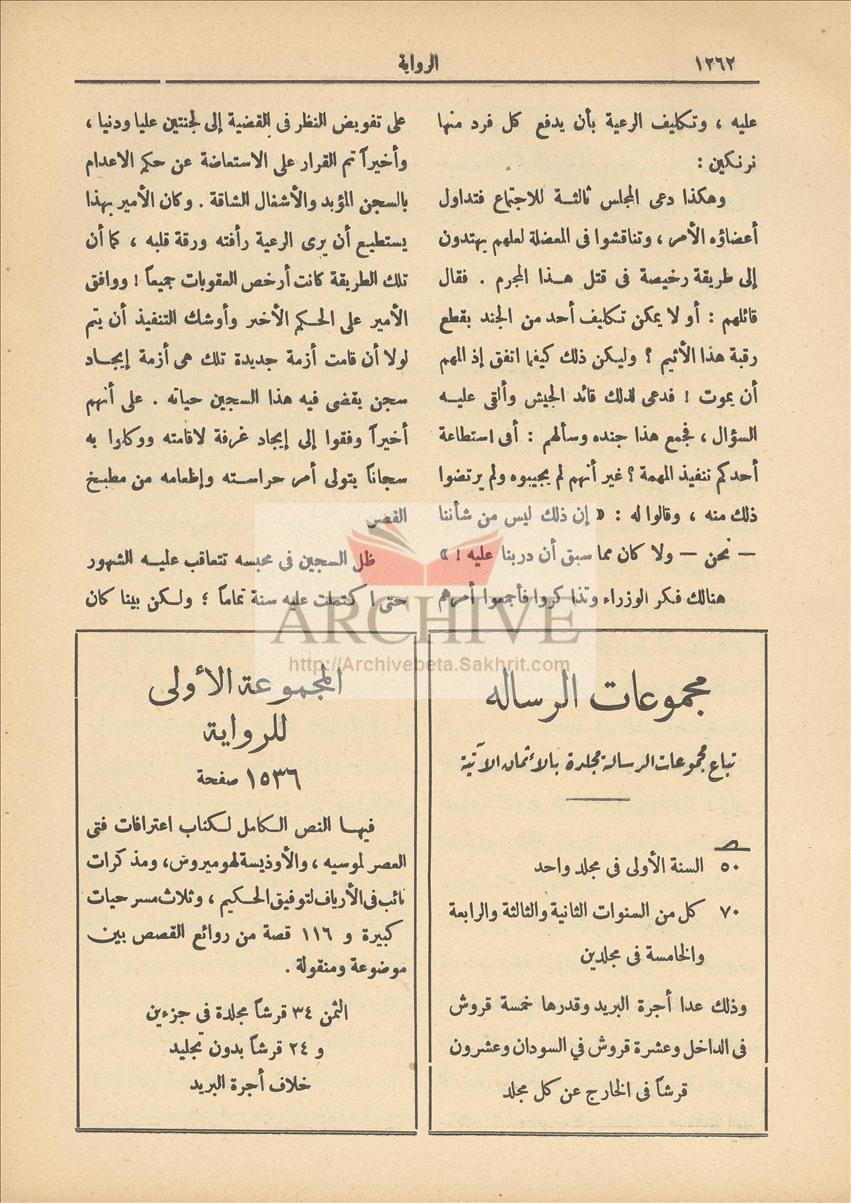 ١٢٦٢
الرواية
عليه ، وتكليف الرعية بأن يدفع كل فرد منها
نرنكين :
وهكذا دعى المجلس ثالثـة للاجتماع فتداول
أعضاؤه الأمر ، وتناقشوا فى المعضلة لعلهم يهتدون
إلى طريقة رخيصة فى قتل هـذا المجرم . فقال
قائلهم : أو لا يمكن تكليف أحد من الجند بقطع
رقبة هذا الأثيم ؟ وليكن ذلك كيفما اتفق إذ المهم
أن يموت ! فدعى لذلك قائد الجيش وألقى عليـه
السؤال ، فجمع هذا جنده وسألهم : أفى استطاعة
أحدكم تنفيذ المهمة ؟ غير أنهم لم يجيبوه ولم يرتضوا
ذلك منه ، وقالوا له : « إن ذلك ليس من شأننا
— نحن — ولا كان مما سبق أن دربنا عليه ! »
هنالك فكر الوزراء وتذاكروا فأجمعوا أمرهم
على تفويض النظر فى القضية إلى لجنتين عليا ودنيا ،
وأخيراً تم القرار على الاستعاضة عن حكم الاعدام
بالسجن المؤبد والأشغال الشاقة . وكان الأمير بهذا
يستطيع أن يرى الرعية رأفته ورقة قلبه ، كما أن
تلك الطريقة كانت أرخص العقوبات جميعاً ! ووافق
الأمير على الحكم الأخير وأوشك التنفيذ أن يتم
لولا أن قامت أزمة جديدة تلك هى أزمة إيجـاد
سجن يقضى فيه هذا السجين حياته . على أنهم
أخيراً وفقوا إلى إيجاد غرفة لاقامته ووكلوا به
سجاناً يتولى أمر حراسته وإطعامه من مطبخ
القصر
ظل السجين فى محبسه تتعاقب عليـه الشهور
حتى اكتملت عليه سنة تماماً ؛ ولكن بينا كان
ARCHIVE
http://Archivebeta.Sakhrit.com
مجموعات الرساله
تباع مجموعات الرسالة مجلدة بالأثمان الآتية
٥٠ السنة الأولى فى مجلد واحد
٧٠ كل من السنوات الثانية والثالثة والرابعة
والخامسة فى مجلدين
وذلك عدا أجرة البريد وقدرها خمسة قروش
فى الداخل وعشرة قروش في السودان وعشرون
قرشاً فى الخارج عن كل مجلد
المجموعة الأولى
للرواية
١٥٣٦ صفحة
فيهـا النص الكامل لكتاب اعترافات فتى
العصر لموسيه ، والأوذيسة لهوميروس، ومذكرات
نائب فى الأرياف لتوفيق الحكيم ، وثلاث مسرحيات
كبيرة و ١١٦ قصة من روائع القصص بين
موضوعة ومنقولة .
الثمن ٣٤ قرشاً مجلدة فى جزءين
و ٢٤ قرشاً بدون تجليد
خلاف أجرة البريد